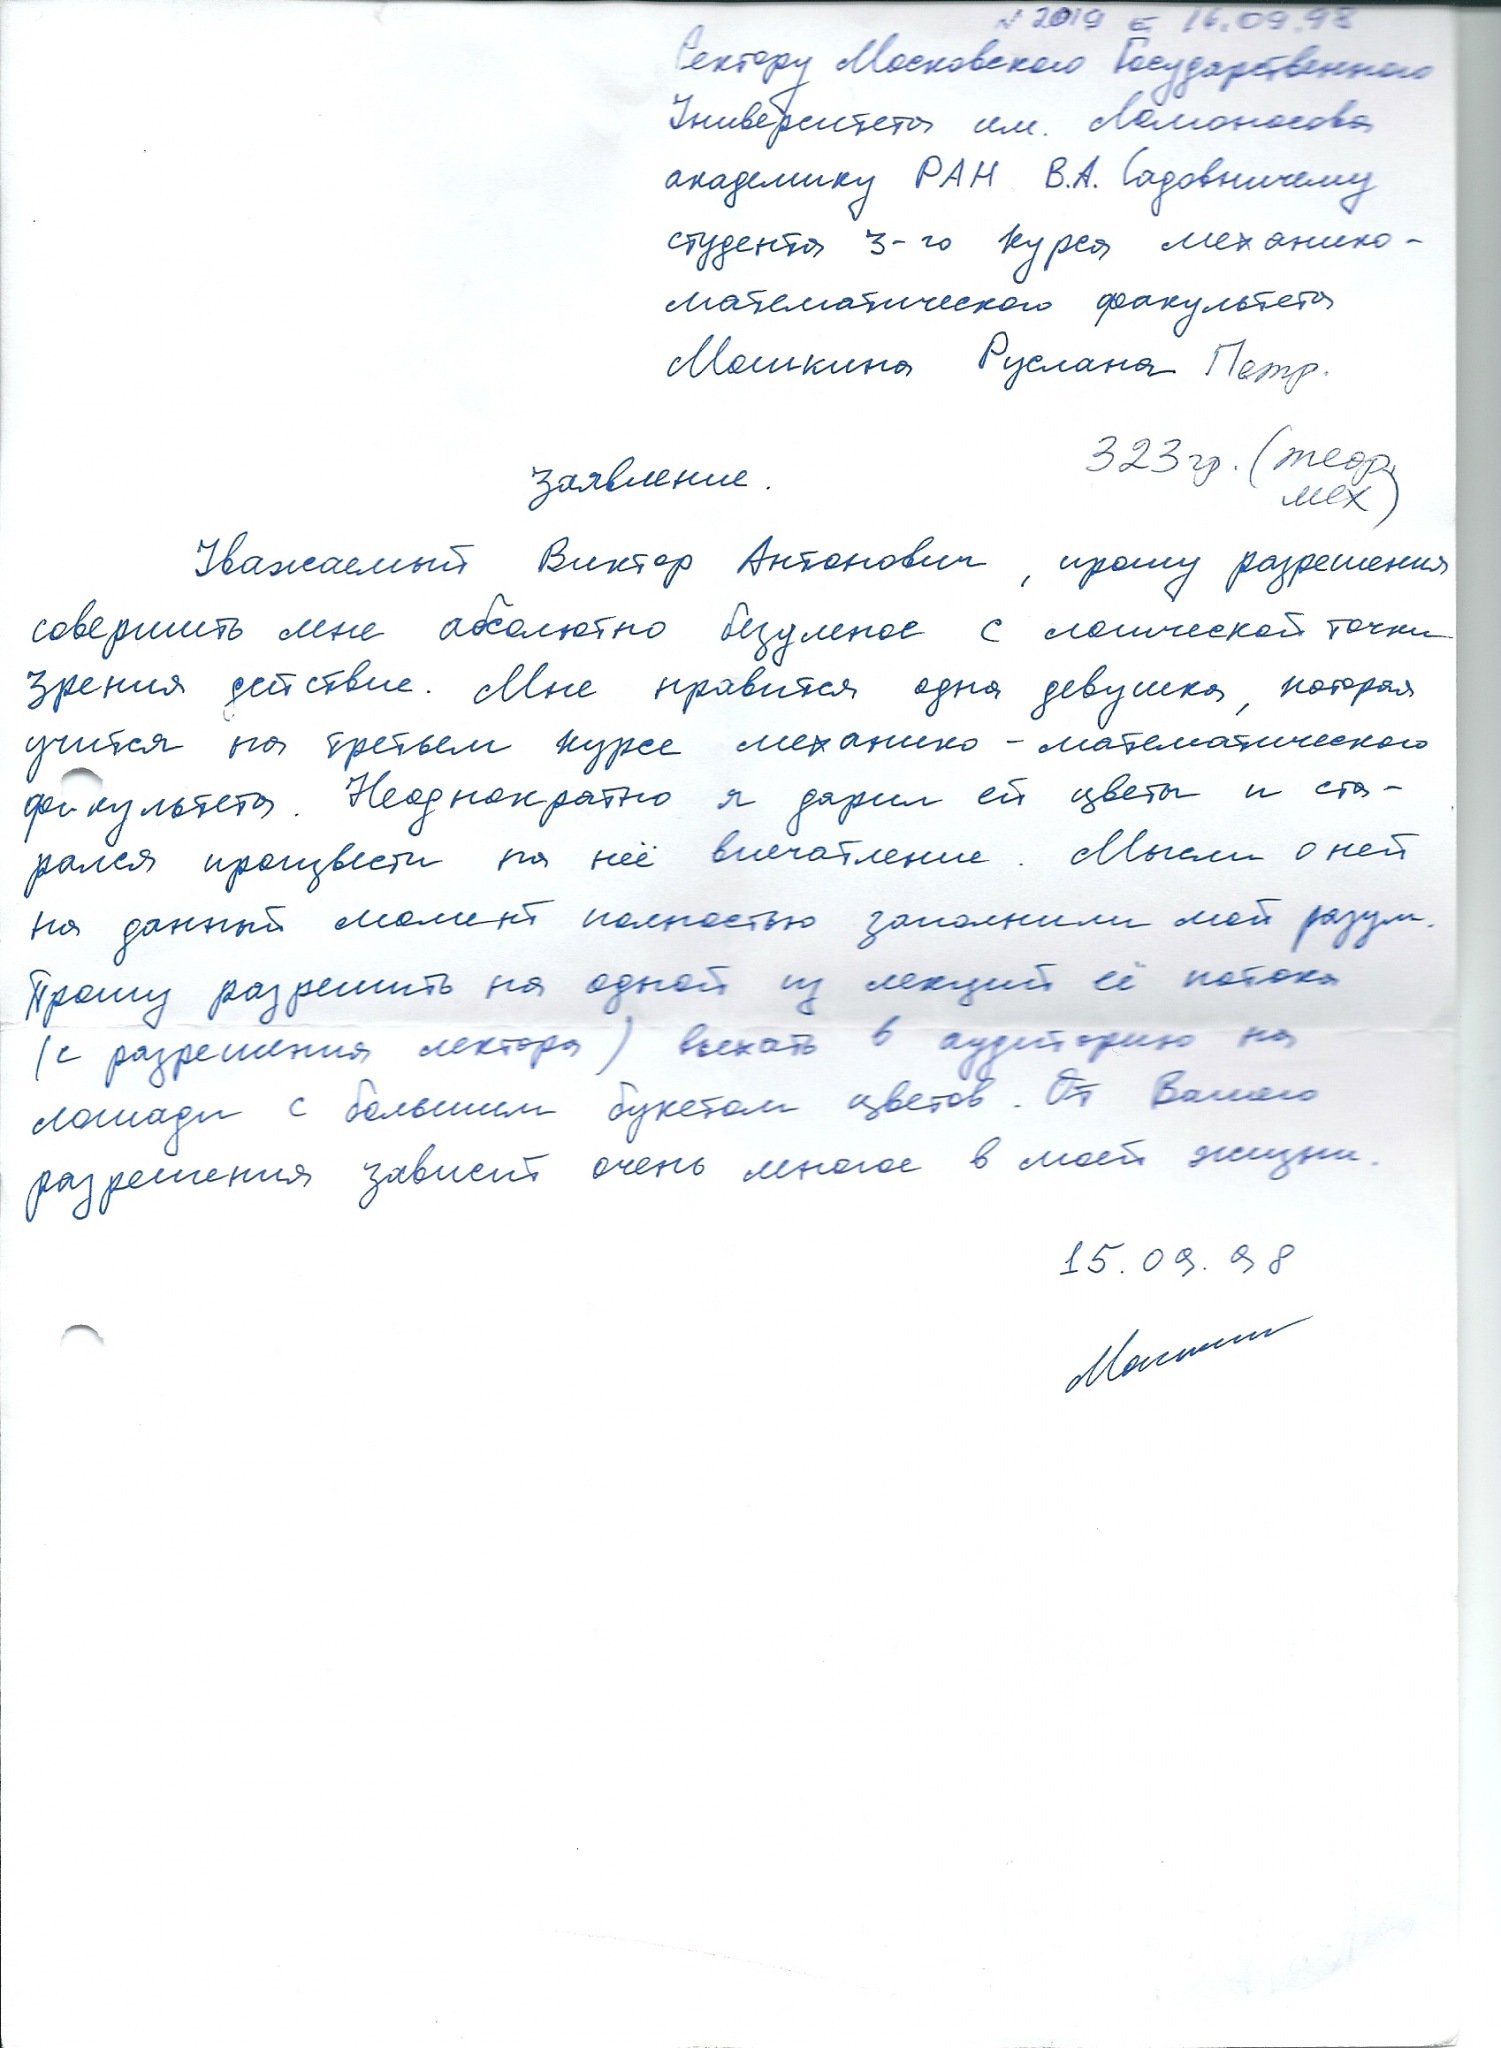 N 2019 от 16.09.98
Ректору Московского Государственного
Университета им. Ломоносова
академику РАН В.А. Садовничему
студента 3-го курса механико-
математического факультета
Мошкина Руслана Петр.
323 гр. (теор.
мех)
Заявление.
Уважаемый Виктор Антонович, прошу разрешения
совершить мне абсолютно безумное с логической точки
зрения действие. Мне нравится одна девушка, которая
учится на третьем курсе механико-математического
факультета. Неоднократно я дарил ей цветы и ста-
рался произвести на неё впечатление. Мысли о ней
на данный момент полностью заполнили мой разум.
Прошу разрешить на одной из лекций её потока
(с разрешения лектора) въехать в аудиторию на
лошади с большим букетом цветов. От Вашего
разрешения зависит очень многое в моей жизни.
15.09.98